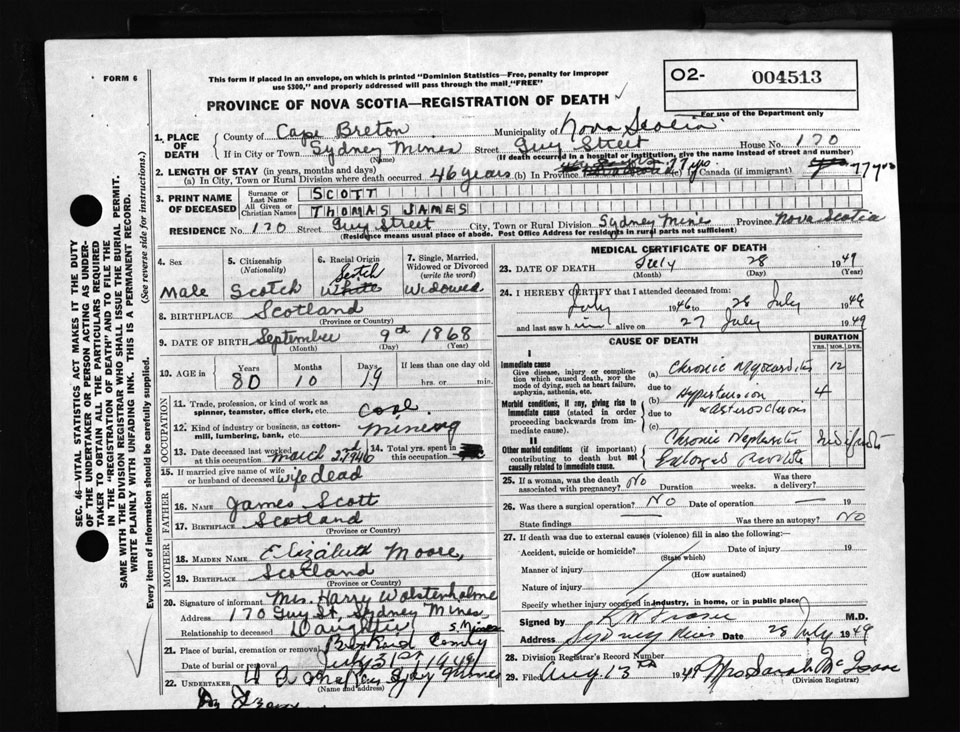 FORM 6
This form if placed in an envelope, on which is printed "Dominion Statistics—Free, penalty for improper
use $300," and properly addressed will pass through the mail "FREE"
O2- 004513
For use of the Department only
PROVINCE OF NOVA SCOTIA—REGISTRATION OF DEATH
1. PLACE OF DEATH
County of Cape Breton Municipality of Nova Scotia
If in City or Town Sydney Mines Street Guy Street House No. 170
(Name) (If death occurred in a hospital or institution, give the name instead of street and number)
2. LENGTH OF STAY (in years, months and days)
(a) In City, Town or Rural Division where death occurred 46 years (b) In Province (c) In Canada (if immigrant) 77 yrs
3. PRINT NAME OF DECEASED
Surname or Last Name SCOTT
All Given or Christian Names THOMAS JAMES
RESIDENCE No. 170 Street Guy Street City, Town or Rural Division Sydney Mines Province Nova Scotia
(Residence means usual place of abode. Post Office Address for residents in rural parts not sufficient)
4. Sex 5. Citizenship (Nationality) 6. Racial Origin 7. Single, Married, Widowed or Divorced (write the word)
Scotch
Male Scotch White Widowed
8. BIRTHPLACE Scotland
(Province or Country)
9. DATE OF BIRTH September 9th 1868
(Month) (Day) (Year)
10. AGE in Years Months Days If less than one day old
80 10 19 hrs. or min.
OCCUPATION
11. Trade, profession, or kind of work as
spinner, teamster, office clerk, etc. Coal
12. Kind of industry or business, as cotton-
mill, lumbering, bank, etc. Mining
13. Date deceased last worked at this occupation March 1946 14. Total yrs. spent in this occupation
15. If married give name of wife
or husband of deceased wife dead
FATHER
16. NAME James Scott
17. BIRTHPLACE Scotland
(Province or Country)
MOTHER
18. MAIDEN NAME Elizabeth Moore
19. BIRTHPLACE Scotland
(Province or Country)
20. Signature of informant Mrs. Harry Wolstenholme
Address 170 Guy St. Sydney Mines
Relationship to deceased Daughter
21. Place of burial, cremation or removal S. Mines
Date of burial or removal July 31st 1949
22. UNDERTAKER Sydney Mines
(Name and address)
MEDICAL CERTIFICATE OF DEATH
23. DATE OF DEATH July 28 1949
(Month) (Day) (Year)
24. I HEREBY CERTIFY that I attended deceased from:
July 1946 to 28 July 1949
and last saw him alive on 27 July 1949
CAUSE OF DEATH DURATION
YRS. MOS. DYS.
I
Immediate cause
Give disease, injury or complica-
tion which caused death, not the
mode of dying, such as heart failure,
asphyxia, asthenia, etc.
(a) Chronic Myocarditis 12
due to
Morbid conditions, if any, giving rise to
immediate cause (stated in order
proceeding backwards from im-
mediate cause).
(b) Hypertension 4
due to
(c)
II
Other morbid conditions (if important)
contributing to death but not
causally related to immediate cause.
Chronic Nephritis Indefinite
Enlarged Prostate
25. If a woman, was the death Was there
associated with pregnancy? No Duration weeks. a delivery?
26. Was there a surgical operation? No Date of operation 19
State findings Was there an autopsy? No
27. If death was due to external causes (violence) fill in also the following:—
Accident, suicide or homicide? Date of injury 19
(State which)
Manner of injury
(How sustained)
Nature of injury
Specify whether injury occurred in industry, in home, or in public place
Signed by M.D.
Address Sydney Mines Date 28 July 1949
28. Division Registrar's Record Number
29. Filed Aug. 13th 1949 Mrs Sarah McIsaac
(Division Registrar)
SEC. 46—VITAL STATISTICS ACT MAKES IT THE DUTY
OF THE UNDERTAKER OR PERSON ACTING AS UNDER-
TAKER TO OBTAIN ALL THE PARTICULARS REQUIRED
IN THE "REGISTRATION OF DEATH" AND TO FILE THE
SAME WITH THE DIVISION REGISTRAR WHO SHALL ISSUE THE BURIAL PERMIT.
WRITE PLAINLY WITH UNFADING INK. THIS IS A PERMANENT RECORD.
Every item of information should be carefully supplied. (See reverse side for instructions.)